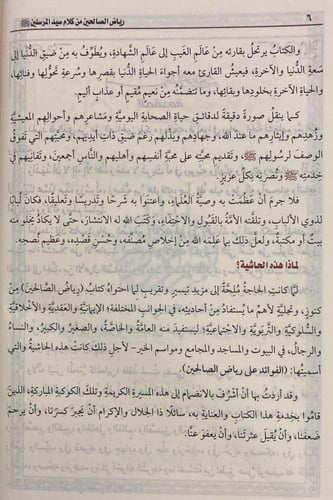 ٦
رياض الصالحين من كلام سيد المرسلين ﷺ
والكتاب يرتحلُ بقارئه مِنْ عَالَمِ الغَيبِ إلى عَالَمِ الشَّهادةِ، ويُطوِّفُ به مِنْ ضِيقِ الدُّنيا إلى
سَعَةِ الدُّنيا والآخرةِ، فيعيشُ القارئُ معه أجواءَ الحياةِ الدُّنيا بِقِصَرِها وسُرعةِ تحوُّلِها وفنائِها،
وأجواءَ الحياةِ الآخرةِ بخلودِها وبقائِها، وما تتضمَّنُه مِنْ نعيمٍ مُقيمٍ أو عذابٍ أليمٍ.
كما ينقلُ صورةً دقيقةً لدقائقِ حياةِ الصحابةِ اليوميَّةِ ومَشاعرِهم وأحوالِهم المعيشيَّةِ
وزُهدِهم وإيثارِهم ما عندَ اللهِ، وجهادِهم وبذلِهم رغمَ ضيقِ ذاتِ أيديهم، ومحبَّتِهم التي تَفوقُ
الوصفَ لرسولِهم ﷺ، وتقديمِ محبَّتِه على محبَّةِ أنفسِهم وأهليهم والنَّاسِ أجمعينَ، وتَفانيهم في
خِدمتِه ﷺ ونُصرتِه بكلِّ عزيزٍ.
فلا جرمَ أنْ عَظُمتْ به وصيةُ العُلماءِ، واعتنَوا به شرحًا وتدريسًا وتعليقًا، فكانَ لُبابًا
لذوي الألبابِ، وتلقَّتْه الأمَّةُ بالقَبُولِ والاحتفاءِ، وكَتَبَ اللهُ له الانتشارَ، حتَّى لا يكادُ يخلو منه
بيتٌ أو مكتبةٌ، ولعلَّ ذلكَ بما عَلِمَه اللهُ مِنْ إخلاصِ مُصنِّفِه، وحُسنِ قَصْدِه، وعظيمِ نُصحِه.
لماذا هذه الحاشية؟
لـمَّا كانتِ الحاجةُ مُلحَّةً إلى مزيدِ تيسيرٍ وتقريبٍ لِما احتواه كتابُ (رياض الصَّالحين) مِنْ
كنوزٍ، وتجليةٍ لأهمِّ ما يُستفادُ مِنْ أحاديثِه، في الجوانبِ المختلفةِ: الإيمانيَّةِ والعقديَّةِ والأخلاقيَّةِ
والسُّلوكيَّةِ والتَّربويَّةِ والاجتماعيَّةِ؛ ليستفيدَ منه العامَّةُ والخاصَّةُ، والصغيرُ والكبيرُ، والنساءُ
والرجالُ، في البيوتِ والمساجدِ والمجامعِ ومواسمِ الخيرِ- لأجلِ ذلكَ كانتْ هذه الحاشيةُ والتي
أسميتُها: (الفوائد على رياض الصالحين).
وقد أردتُ بها أنْ أتشرَّفَ بالانضمامِ إلى هذه المسيرةِ الكريمةِ وتلكَ الكوكبةِ المباركةِ، الذينَ
قاموا بخدمةِ هذا الكتابِ والعنايةِ به، سائلًا ذا الجلالِ والإكرامِ أنْ يَجبُرَ كسرَنا، وأنْ يرحمَ
ضَعفَنا، وأنْ يُقِيلَ عثرتَنا، وأنْ يعفوَ عنَّا.